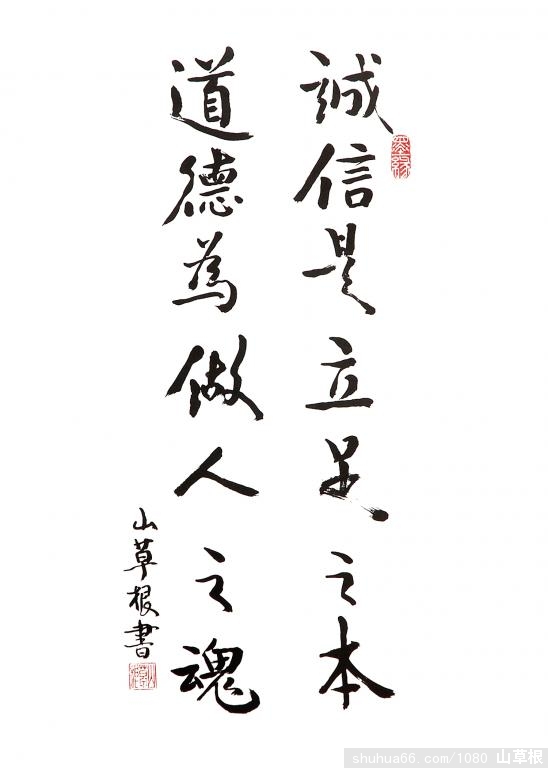 誠信是立足之本
道德為做人之魂
山草根書
墨緣
shuhua66.com/1080 山草根